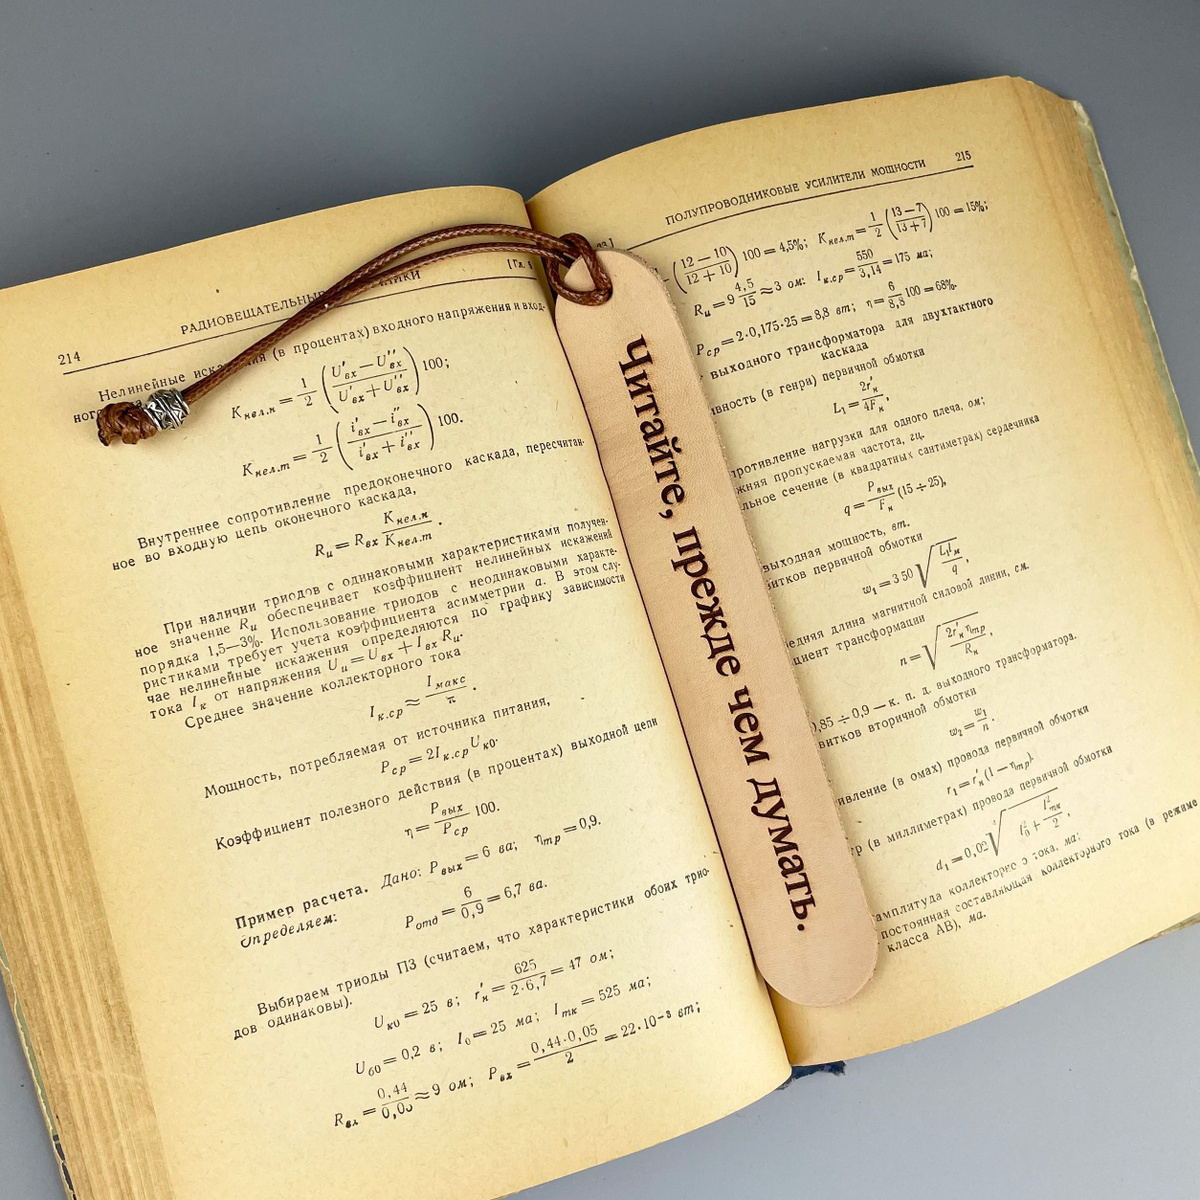 214
РАДИОВЕЩАТЕЛЬНЫЕ
[Гл.
Нелинейные (в процентах) входного напряжения и вход-
K нел.н = 1/2 (U′вх − U″вх / U′вх + U″вх) 100;
K нел.т = 1/2 (i′вх − i″вх / i′вх + i″вх) 100.
Внутреннее сопротивление предоконечного каскада, пересчитан-
ное во входную цепь оконечного каскада,
Rи = Rвх Kнел.н / Kнел.т .
При наличии триодов с одинаковыми характеристиками получен-
ное значение Rи обеспечивает коэффициент нелинейных искажений
порядка 1,5—3%. Использование триодов с неодинаковыми характе-
ристиками требует учета коэффициента асимметрии a. В этом слу-
чае нелинейные искажения определяются по графику зависимости
тока Iк от напряжения Uи = Uвх + Iвх Rи.
Среднее значение коллекторного тока
Iк.ср ≈ Iмакс / π .
Мощность, потребляемая от источника питания,
Pср = 2Iк.ср Uк0.
Коэффициент полезного действия (в процентах) выходной цепи
η = Pвых / Pср 100.
Пример расчета. Дано: Pвых = 6 ва; ηтр = 0,9.
Определяем:
Pотд = 6 / 0,9 = 6,7 ва.
Выбираем триоды П3 (считаем, что характеристики обоих трио-
дов одинаковы).
Uк0 = 25 в; r′н = 625 / 2·6,7 = 47 ом;
Uб0 = 0,2 в; I0 = 25 ма; Iтк = 525 ма;
Rвх = 0,44 / 0,05 ≈ 9 ом; Pвх = 0,44·0,05 / 2 = 22·10−3 вт;
Читайте, прежде чем думать.
ПОЛУПРОВОДНИКОВЫЕ УСИЛИТЕЛИ МОЩНОСТИ 215
(12 − 10 / 12 + 10) 100 = 4,5%; Kнел.т = 1/2 (13 − 7 / 13 + 7) 100 = 15%;
Rи = 9 4,5 / 15 ≈ 3 ом; Iк.ср = 550 / 3,14 = 175 ма;
Pср = 2·0,175·25 = 8,8 вт; η = 6 / 8,8 100 = 68%.
выходного трансформатора для двухтактного
каскада
(в генри) первичной обмотки
L1 = 2r′н / 4Fн ,
нагрузки для одного плеча, ом;
пропускаемая частота, гц.
сечение (в квадратных сантиметрах) сердечника
q = Pвых / Fн (15 ÷ 25),
выходная мощность, вт.
первичной обмотки
w1 = 350 √ L1lм / q ,
длина магнитной силовой линии, см.
трансформации
n = √ 2r′н ηтр / Rн ,
0,85 ÷ 0,9 — к. п. д. выходного трансформатора.
вторичной обмотки
w2 = w1 / n .
(в омах) провода первичной обмотки
r1 = r′н (1 − ηтр).
(в миллиметрах) провода первичной обмотки
d1 = 0,02 √ I²0 + I²тк / 2 ,
амплитуда коллекторного тока, ма;
постоянная составляющая коллекторного тока (в режиме
класса АВ), ма.